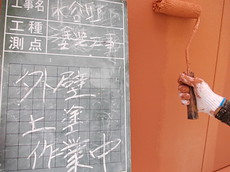 工事名
工種 塗装工事
測点
外壁
上塗
作業中